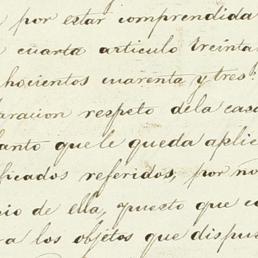 por estar comprendida
cuarta articulo treinta
hocientos cuarenta y tres:
laracion respeto dela casa
tanto que le queda aplic
ficados referidos, por no
io de ella, puesto que co
ra los objetos que dispu